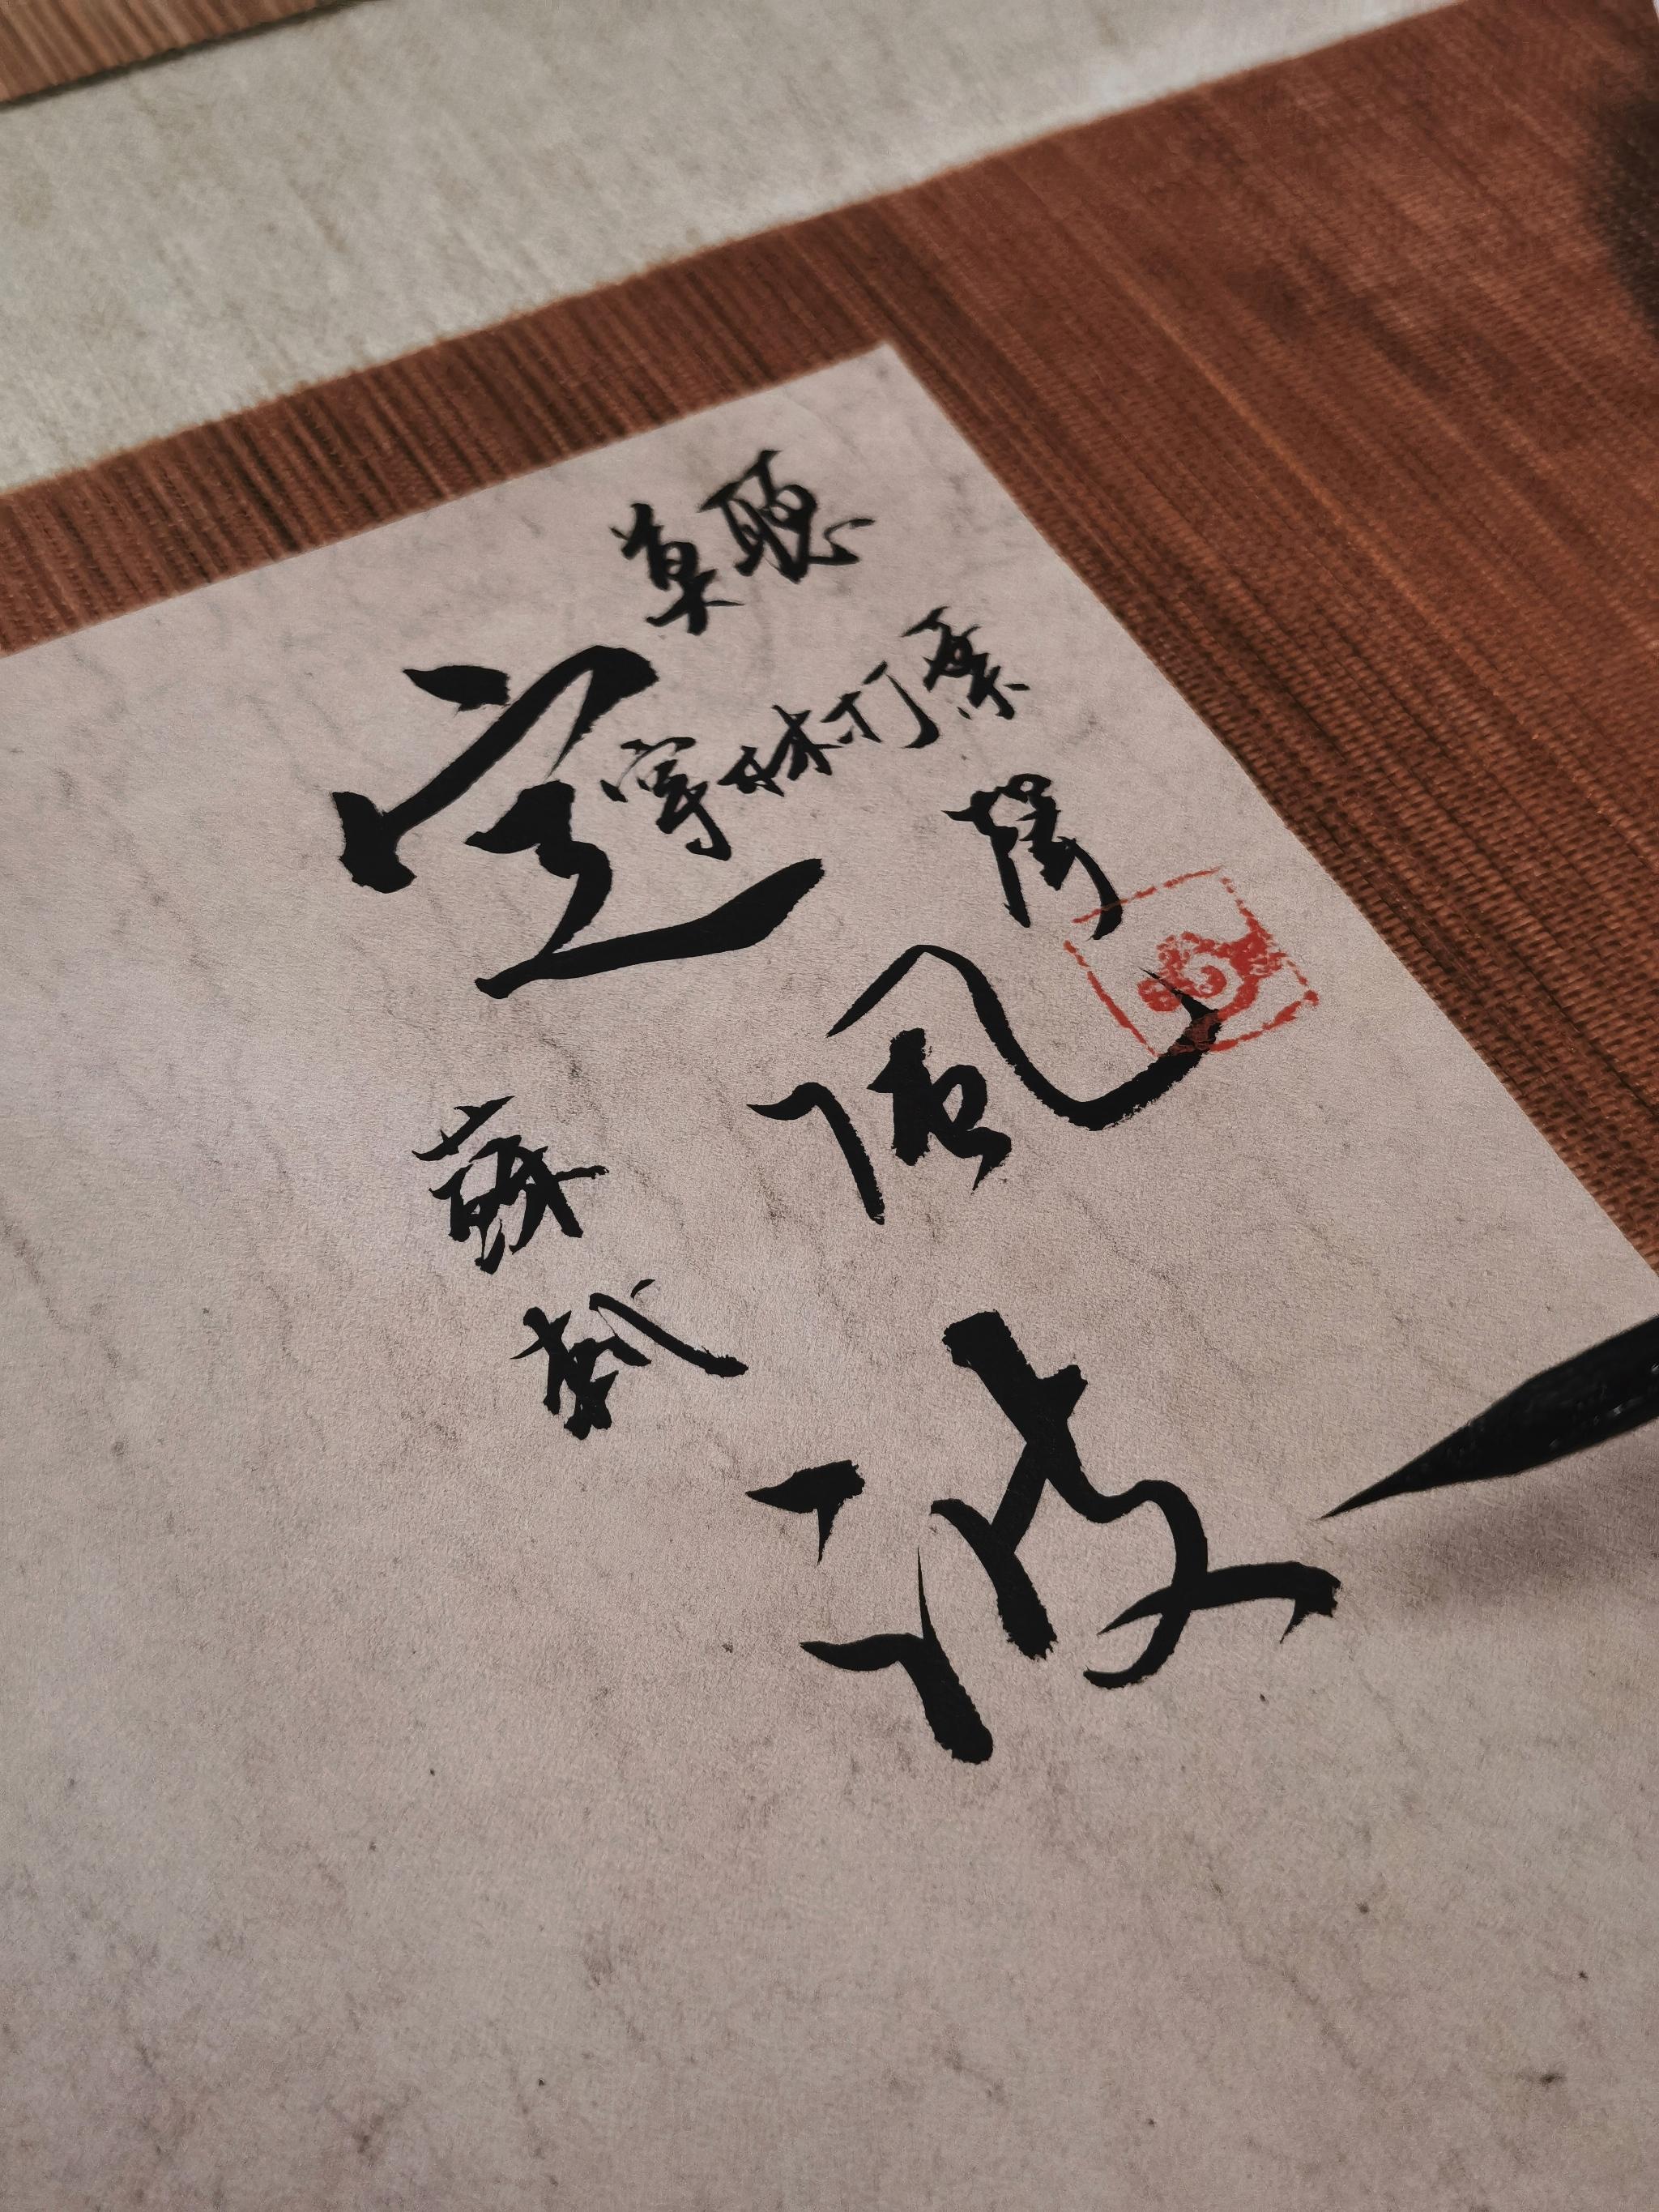 莫聽
穿林打葉
聲
定風波
蘇軾